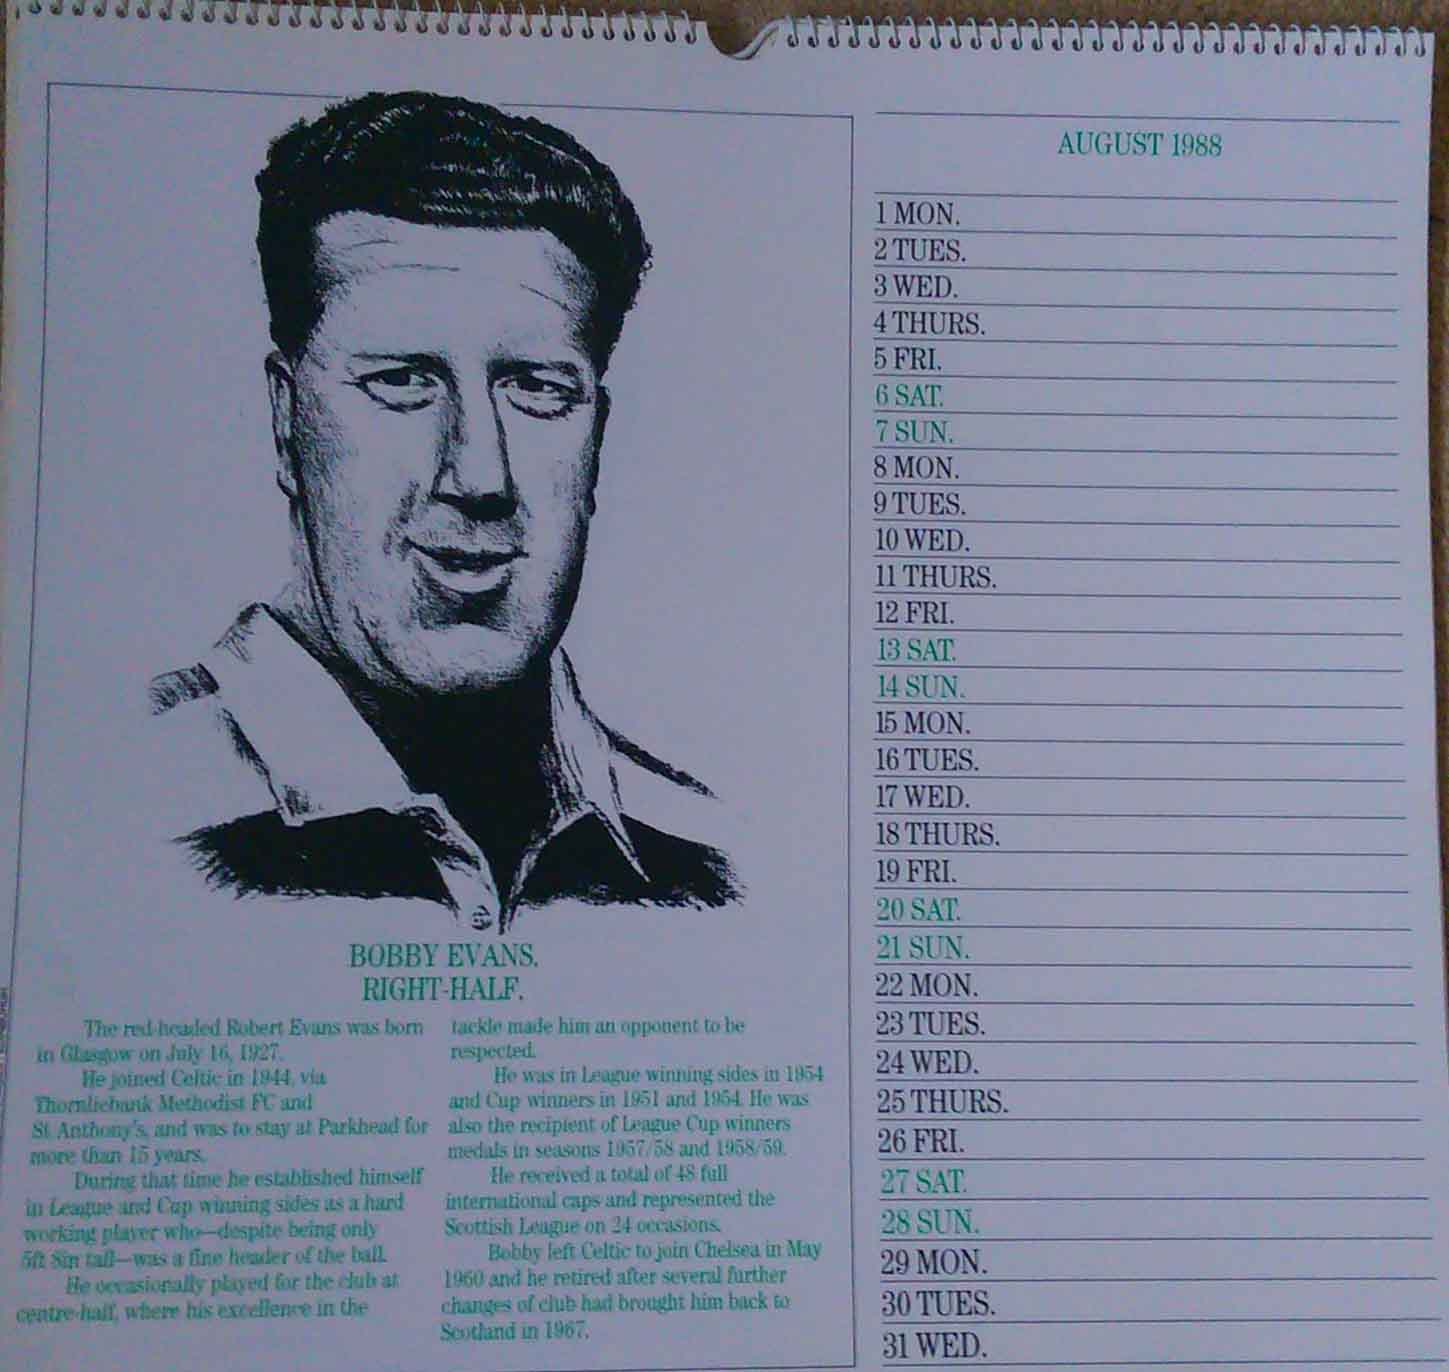 AUGUST 1988
1 MON.
2 TUES.
3 WED.
4 THURS.
5 FRI.
6 SAT.
7 SUN.
8 MON.
9 TUES.
10 WED.
11 THURS.
12 FRI.
13 SAT.
14 SUN.
15 MON.
16 TUES.
17 WED.
18 THURS.
19 FRI.
20 SAT.
21 SUN.
22 MON.
23 TUES.
24 WED.
25 THURS.
26 FRI.
27 SAT.
28 SUN.
29 MON.
30 TUES.
31 WED.
BOBBY EVANS.
RIGHT-HALF.
The red-headed Robert Evans was born
in Glasgow on July 16, 1927.
He joined Celtic in 1944, via
Thornliebank Methodist FC and
St. Anthony's, and was to stay at Parkhead for
more than 15 years.
During that time he established himself
in League and Cup winning sides as a hard
working player who—despite being only
5ft 8in tall—was a fine header of the ball.
He occasionally played for the club at
centre-half, where his excellence in the
tackle made him an opponent to be
respected.
He was in League winning sides in 1954
and Cup winners in 1951 and 1954. He was
also the recipient of League Cup winners
medals in seasons 1957/58 and 1958/59.
He received a total of 48 full
international caps and represented the
Scottish League on 24 occasions.
Bobby left Celtic to join Chelsea in May
1960 and he retired after several further
changes of club had brought him back to
Scotland in 1967.